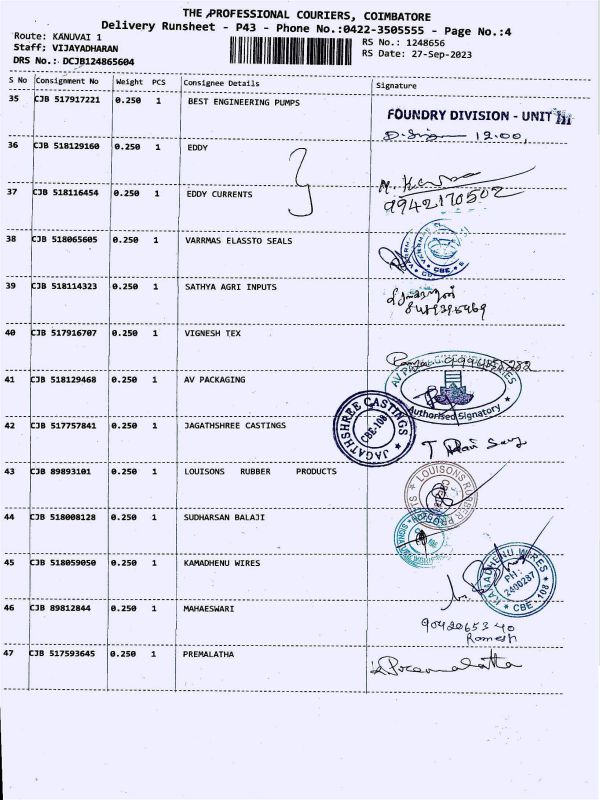 THE PROFESSIONAL COURIERS, COIMBATORE
Delivery Runsheet - P43 - Phone No.:0422-3505555 - Page No.:4
Route: KANUVAI 1
Staff: VIJAYADHARAN
DRS No.: DCJB124865604
RS No.: 1248656
RS Date: 27-Sep-2023
S No Consignment No Weight PCS Consignee Details Signature
35 CJB 517917221 0.250 1 BEST ENGINEERING PUMPS
FOUNDRY DIVISION - UNIT III
12.00,
36 CJB 518129160 0.250 1 EDDY
37 CJB 518116454 0.250 1 EDDY CURRENTS
9942170502
38 CJB 518065605 0.250 1 VARRMAS ELASSTO SEALS
39 CJB 518114323 0.250 1 SATHYA AGRI INPUTS
40 CJB 517916707 0.250 1 VIGNESH TEX
41 CJB 518129468 0.250 1 AV PACKAGING
Authorised Signatory
42 CJB 517757841 0.250 1 JAGATHSHREE CASTINGS
JAGATHSHREE CASTINGS
CBE-108
43 CJB 89893101 0.250 1 LOUISONS RUBBER PRODUCTS
LOUISONS RUBBER PRODUCTS
44 CJB 518008128 0.250 1 SUDHARSAN BALAJI
45 CJB 518059050 0.250 1 KAMADHENU WIRES
KAMADHENU WIRES
PH:
2400287
CBE-108
46 CJB 89812844 0.250 1 MAHAESWARI
9042065340
Ramesh
47 CJB 517593645 0.250 1 PREMALATHA
K. Premalatha